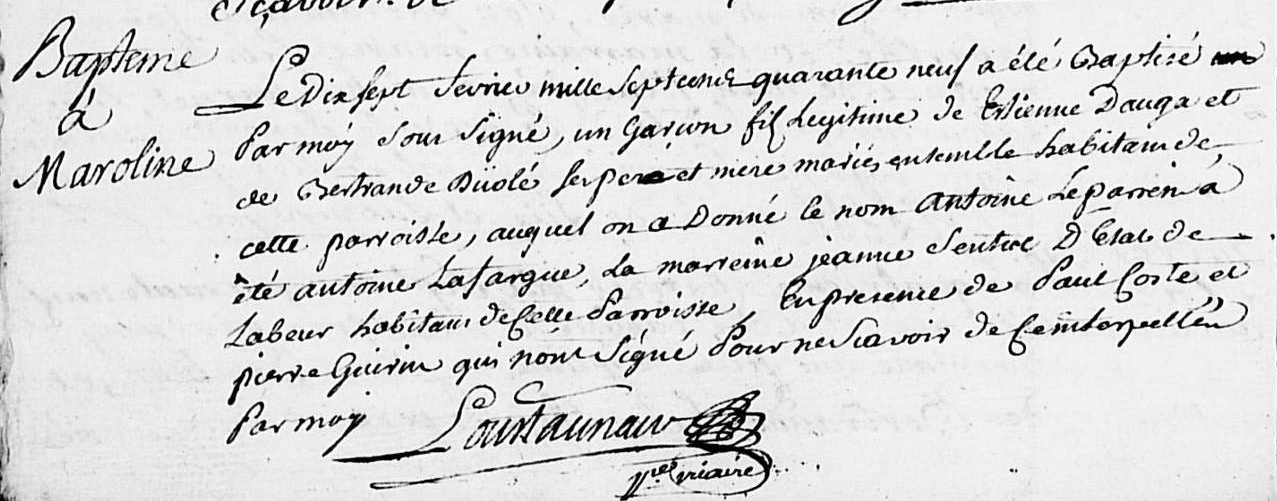 Bapteme
à
Maroline
Le Dix sept fevrier mille septcens quarante neuf a été Baptisé
Par moy sous signé, un Garçon fils Legitime de Estienne Dauga et
de Bertrande Düolé ses pere et mere mariés ensemble habitans de
cette parroisse, auquel on a Donné le nom antoine Le parrein a
été antoine Lafargue, La marreine jeanne Sentuc D'Etat de
Labeur habitans de Cette Parroisse, En presence de Paul Coste et
pierre Guirin qui n'ont Signé Pour ne Scavoir de Ce interpellés
Par moy Loustaunau